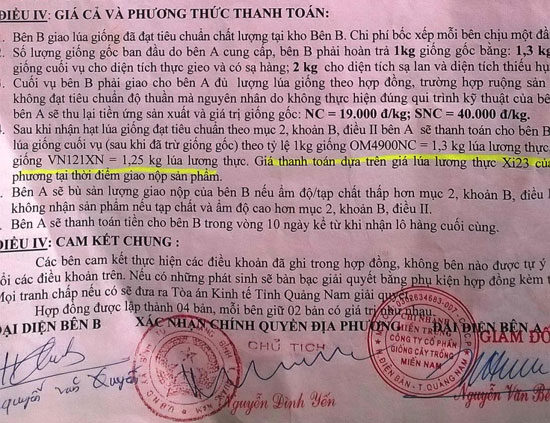 ĐIỀU IV: GIÁ CẢ VÀ PHƯƠNG THỨC THANH TOÁN:
Bên B giao lúa giống đã đạt tiêu chuẩn chất lượng tại kho Bên B. Chi phí bốc xếp mỗi bên chịu một đầ
Số lượng giống gốc ban đầu do bên A cung cấp, bên B phải hoàn trả 1kg giống gốc bằng: 1,3 k
giống cuối vụ cho diện tích thực gieo và có sạ hàng; 2 kg cho diện tích sạ lan và diện tích thiếu hụ
Cuối vụ bên B phải giao cho bên A đủ lượng lúa giống theo hợp đồng, trường hợp ruộng sản
không đạt tiêu chuẩn độ thuần mà nguyên nhân do không thực hiện đúng qui trình kỹ thuật của bê
bên A sẽ thu lại tiền ứng sản xuất và giá trị giống gốc: NC = 19.000 đ/kg; SNC = 40.000 đ/kg.
Sau khi nhận hạt lúa giống đạt tiêu chuẩn theo mục 2, khoản B, điều II bên A sẽ thanh toán cho bên B
lúa giống cuối vụ (sau khi đã trừ giống gốc) theo tỷ lệ 1kg giống OM4900NC = 1,3 kg lúa lương thực
giống VN121XN = 1,25 kg lúa lương thực. Giá thanh toán dựa trên giá lúa lương thực Xi23 củ
phương tại thời điểm giao nộp sản phẩm.
Bên A sẽ bù sản lượng giao nộp của bên B nếu ẩm độ/tạp chất thấp hơn mục 2, khoản B, điều I
không nhận sản phẩm nếu tạp chất và ẩm độ cao hơn mục 2, khoản B, điều II.
Bên A sẽ thanh toán tiền cho bên B trong vòng 10 ngày kể từ khi nhận lô hàng cuối cùng.
ĐIỀU IV: CAM KẾT CHUNG :
Các bên cam kết thực hiện các điều khoản đã ghi trong hợp đồng, không bên nào được tự ý
ổi các điều khoản trên. Nếu có những phát sinh sẽ bàn bạc giải quyết bằng phụ kiện hợp đồng kèm t
Mọi tranh chấp nếu có sẽ đưa ra Tòa án Kinh tế Tỉnh Quảng Nam giải quyết.
Hợp đồng được lập thành 04 bản, mỗi bên giữ 02 bản có giá trị như nhau.
ĐẠI DIỆN BÊN B XÁC NHẬN CHÍNH QUYỀN ĐỊA PHƯƠNG ĐẠI DIỆN BÊN A
CHỦ TỊCH
GIÁM ĐỐ
MIỀN TRUNG
CÔNG TY CỔ PHẦN
GIỐNG CÂY TRỒNG
MIỀN NAM
Đ. ĐIỆN BÀN - T. QUẢNG NAM
Nguyễn Đình Yến
Nguyễn Văn Bê